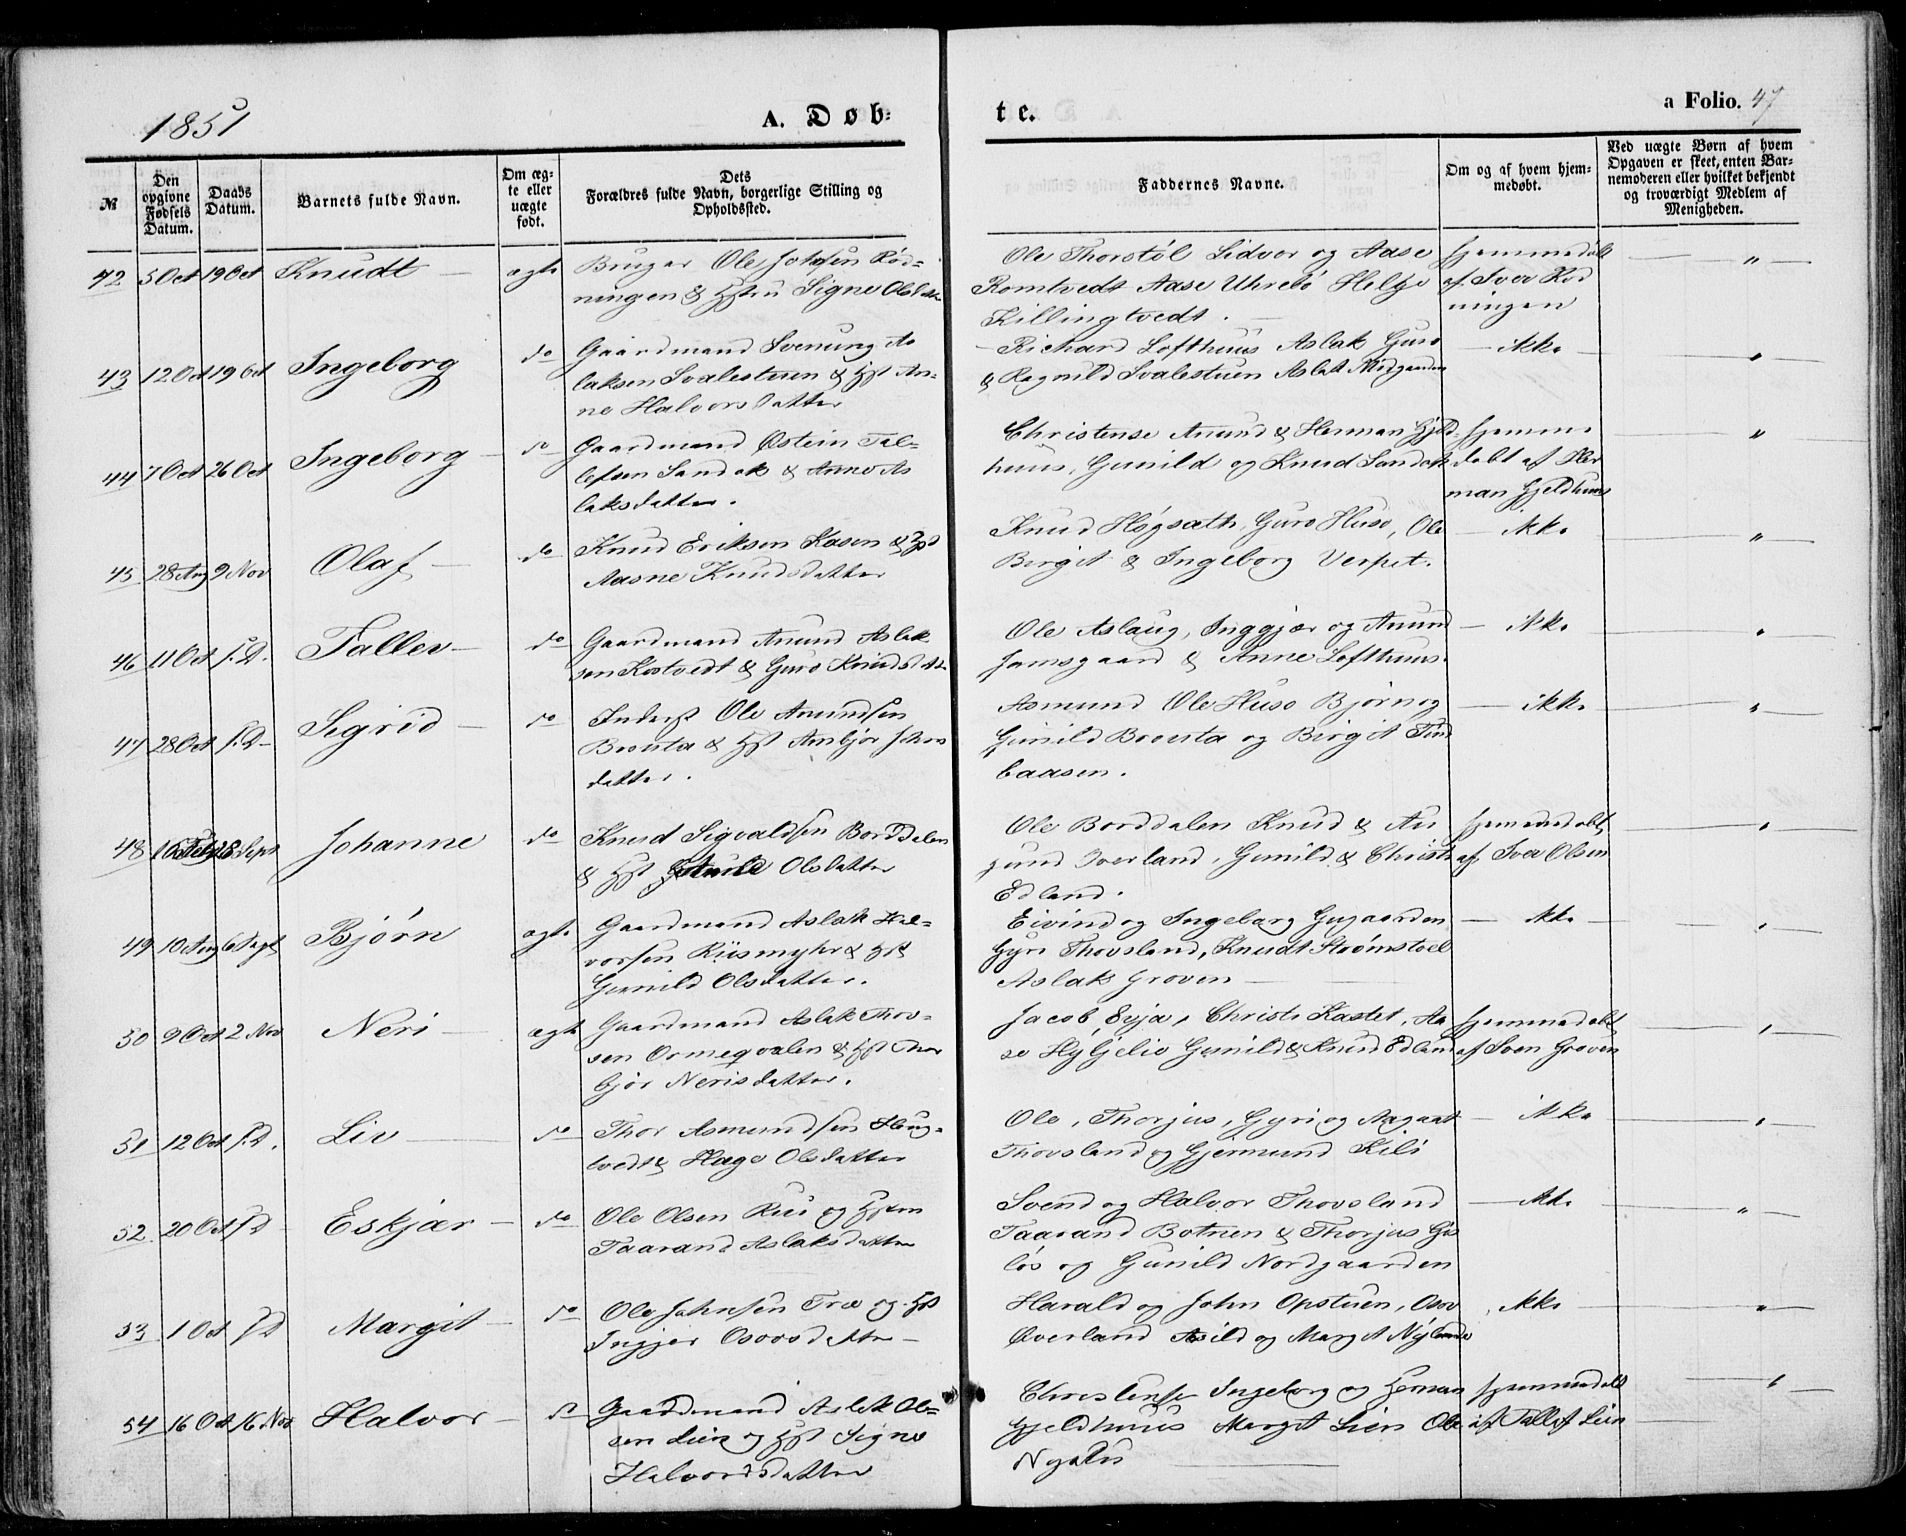 1851
A. Døb-
te.
a Folio. 47
№
Den opgivne Fødsels Datum.
Daabs Datum.
Barnets fulde Navn.
Om ægte eller uægte født.
Dets Forældres fulde Navn, borgerlige Stilling og Opholdssted.
Faddernes Navne.
Om og af hvem hjemmedøbt.
Ved uægte Børn af hvem Opgaven er skeet, enten Barnemoderen eller hvilket bekjendt og troværdigt Medlem af Menigheden.
42 5 Oct 19 Oct Knudt ægte Bruger Ole Johnsen Rød-
ningen & Hstru Signe Olsdatter
Ole Thorstöl Sidvor og Aase
Romtvedt Aase Uhrebö Helge
Killingtvedt.
hjemmedöbt
af Iver Rød
ningen
43 12 Oct 19 Oct Ingeborg do Gaardmand Svenung As
laksen Svalestuen & Hst An-
ne Halvorsdatter
Richard Lofthuus Aslak Guro
& Ragnild Svalestuen Aslak Midgaarden
ikke
44 7 Oct 26 Oct Ingeborg do Gaardmand Östein Tal-
lefsen Sandok & Anne As
laksdatter.
Christense Anund & Herman Gjeld
huus, Gunild og Knud Sandok
hjemme
døbt af Her
man Gjeldhuus
45 28 Aug 9 Nov Olaf do Knud Eriksen Kasen & Hst
Aasne Knudsdatter
Knud Högsæth, Guro Huso, Ole
Birgit & Ingeborg Verpet.
ikke
46 11 Oct s. D. Tallev do Gaardmand Anund Aslak
sen Kostvedt & Guro Knudsdatter
Ole Aslaug, Inggjær og Anund
Jamsgaard & Anne Lofthuus.
ikke
47 28 Oct s. D. Sigrid do Inderst Ole Anundsen
Brousta & Hst Anbjør Johns
datter.
Asmund Ole Huso Bjørn og
Gunild Brousta og Birgit Tind
baasen.
ikke
48 28 Sept Johanne do Knud Sigvaldsen Borddalen
& Hst Olsdatter
Ole Borddalen Knud & Au
gund Overland, Gunild & Christi
Edland.
hjemmedøbt
af Iver Olsen
49 10 Aug 6 Sept Bjørn ægte Gaardmand Aslak Hal-
vorsen Riismyhr & Hst
Gunild Olsdatter.
Eivind og Ingeborg Gugaarden
Gyri Thovsland, Knudt Strömstoel
Aslak Groven
ikke
50 9 Oct 2 Nov Neri ægte Gaardmand Aslak Thov-
sen Ormegvalen & Hst Thor
bjør Nerisdatter.
Jacob Eyja, Christi Kastet, Aa
se Gunild & Knud Edland
hjemmedøbt
af Sven Groven
51 12 Oct s. D. Liv do Thor Asmundsen Houg-
tvedt & Hage Olsdatter
Ole, Thorjus, Gyri og Aagaat
Thovsland og Gjermund Kilö
ikke
52 20 Oct s. D Eskjær do Ole Olsen Riis og Hstru
Taarand Aslaksdatter
Svend og Halvor Thovsland
Taarand Botnen & Thorjus Gis
løs og Gunild Nordgaarden
ikke
53 1 Oct s. D Margit do Ole Johnsen Træ og Hst
Ingjer Osovsdatter
Harald og John Opstuen, Osov
Överland Asild og Margit Nylende
ikke
54 16 Oct 16 Nov Halvor do Gaardmand Aslak Ol-
sen Lien og Hst Signe
Halvorsdatter
Christense Ingeborg og Herman
Gjeldhuus Margit Lien Ole
Nyhus
hjemmedøbt
af Tallef Lien